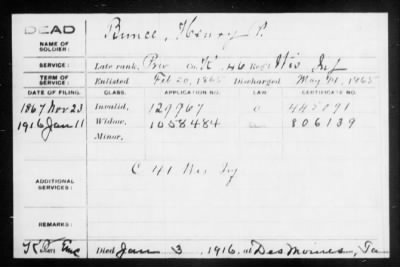 DEAD
NAME OF SOLDIER: Bunce, Henry P.
SERVICE: Late rank, Priv Co. K, 46 Reg't Wis Inf
TERM OF SERVICE: Enlisted Feb 20, 1865 Discharged May 1865
DATE OF FILING. CLASS. APPLICATION NO. LAW CERTIFICATE NO.
1867 Nov 23 Invalid, 129967 a 445091
1916 Jan 11 Widow, 1058484 a 806139
Minor,
ADDITIONAL SERVICES: C 41 Wis Inf
REMARKS:
Died Jan 3, 1916, at Des Moines, Ia